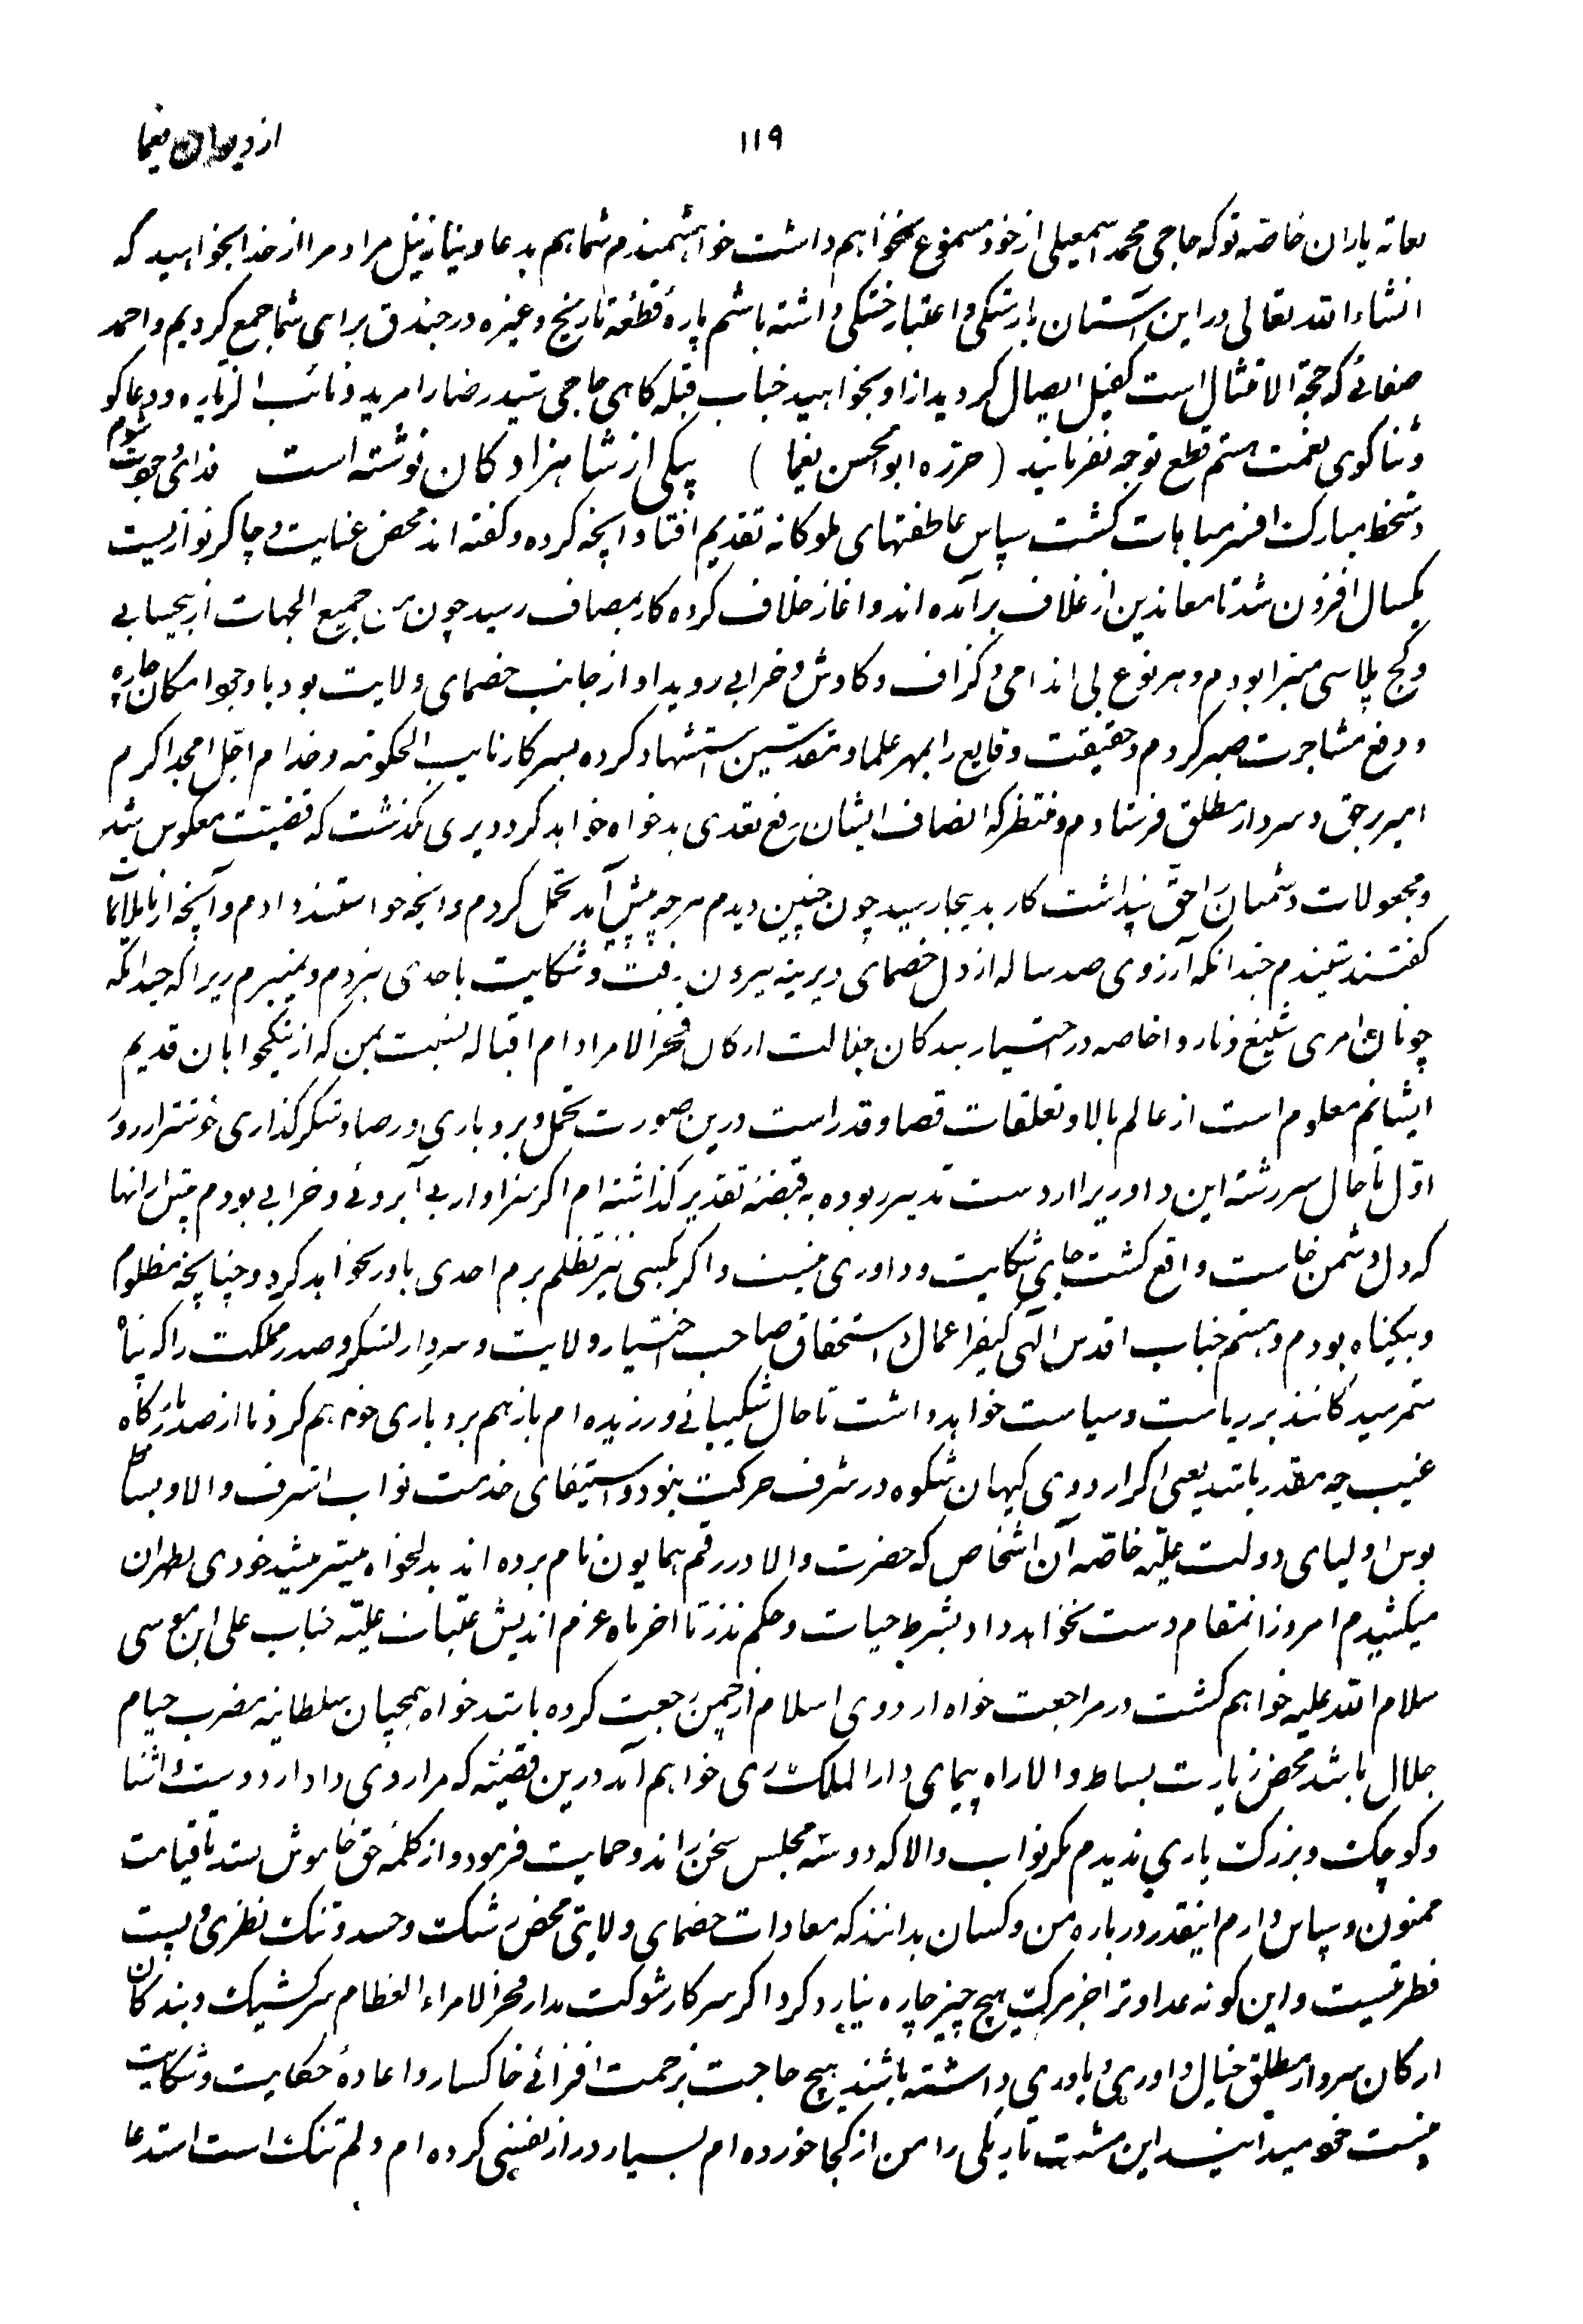 از دیوان یغما
۱۱۹
بعامه یاران خاصه تو که حاجی محمد اسمعیلی از خود مسموع نخواهم داشت خواهشمندم شما هم بدعا و نیاز نیل مراد مرا از خدا بخواهید که
انشاء الله تعالی در این آستان بارتنکی و اعتبار ختنکی داشته باشم پارهٔ قطعه تاریخ و غیره در جندق برای شما جمع کردیم و احمد
صفائی که حجة الامثال است کفیل ایصال کردید از او بخواهید جناب قبله کاهی حاجی سید رضا را مرید و نائب الزیاره و دعا کو
و ثنا کوی نعمت هستم قطع توجه نفرمایند ( حرره ابوالحسن یغما ) بیکی از شاهزاد کان نوشته است فدای جودت شوم
دستخط مبارک افسر مباهات کشت سپاس عاطفتهای ملوکانه تقدیم افتاد انچه کرده و کفته اند محض عنایت و چاکر نوازیست
یکسال افزون شد تا معاندین از غلاف برآمده اند و اغاز خلاف کرده کار بمصاف رسید چون من جمیع الجهات از بیحسابی
و کج پلاسی مبرا بودم و هر نوع بی اندامی و کزاف و کاوش و خرابی روید او از جانب خصمای ولایت بود با وجود امکان چاره
و دفع مشاجرت صبر کردم و حقیقت وقایع را بمهر علما و مقدسین استشهاد کرده بسرکار نایب الحکومه و خدام اجل امجد اکرم
امیر بر حق و سردار مطلق فرستادم و منتظر که انصاف ایشان رفع تعدی بدخواه خواهد کرد دیری نکذشت که قضیت معکوس شد
و مجعولات دشمنان احق پنداشت کار بدیجا رسید چون چنین دیدم هرچه پیش آمد تحمل کردم و انچه خواستند دادم و آنچه از ناملایمات
کفتند شنیدم چندانکه آرزوی صد ساله از دل خصمای دیرینه بیرون رفت و شکایت باحدی نبردم و نمیبرم زیرا که چندانکه
چونان امری شنیع و ناروا خاصه در اختیار بندکان جلالت ارکان فخر الامرا دام اقباله نسبت بمن که از نیکخواهان قدیم
ایشانم معلوم است از عالم بالا و تعلقات قضا و قدر است درین صورت تحمل و بردباری و رضا و شکر کذاری خوشتر از روز
اول تا حال سررشته این داوریرا از دست تدبیر ربوده به قبضهٔ تقدیر کذاشته ام اکر سزاوار بی آبروئی و خرابی بودم مثل انها
که دل دشمن خاست واقع کشت جای شکایت و داوری نیست و اکر بکسی نیز تظلم برم احدی باور نخواهد کرد و چنانچه مظلوم
و بیکناه بودم و هستم جناب اقدس الهی کیفر اعمال و استحقاق صاحب اختیار ولایت و سردار لشکر و صدر مملکت را که پناه
ستمرسید کانند بر ریاست و سیاست خواهد داشت تا حال شکیبائی ورزیده ام باز هم بردباری خواهم کرد تا از صدر بارکاه
غیب چه مقدر باشد یعی اکر اردوی کیهان شکوه در شرف حرکت نبود و استیفای خدمت نواب اشرف والا و بساط
بوس اولیای دولت علیه خاصه آن اشخاص که حضرت والا در رقم همایون نام برده اند بدلخواه میسر میشد خودی بطهران
میکشیدم امروز انمقام دست نخواهد داد بشرط حیات و حکم نذر تا اخر ماه عزم اندیش عتبات علیه جناب علی ابن موسی
سلام الله علیه خواهم کشت در مراجعت خواه اردوی اسلام از چمن رجعت کرده باشد خواه همچنان سلطانیه مضرب خیام
جلال باشد محض زیارت بساط والا راه پیمای دارالملک ری خواهم آمد درین قضیه که مرا روی داد از دوست و اشنا
و کوچک و بزرک یاری ندیدم مکر نواب والا که دو سه مجلس سخن راند و حمایت فرمود و از کلمهٔ حق خاموش نشد تا قیامت
ممنون و سپاس دارم اینقدر درباره من و کسان بدانند که معادات خصمای ولایتی محض رشک و حسد و تنک نظری و پست
فطرتیست و این کونه عداوترا جز مرک هیچ چیز چاره نیارد کرد اکر سرکار شوکت مدار فخر الامراء العظام سرکشیک و بندکان
ارکان سردار مطلق خیال داوری و یاوری داشته باشند هیچ حاجت بزحمت افزائی خاکسار و اعادهٔ حکایت و شکایت
نیست خود میدانند این مشت تاریکی را من از کجا خورده ام بسیار دراز نفسی کرده ام و لم تنک است استدعا